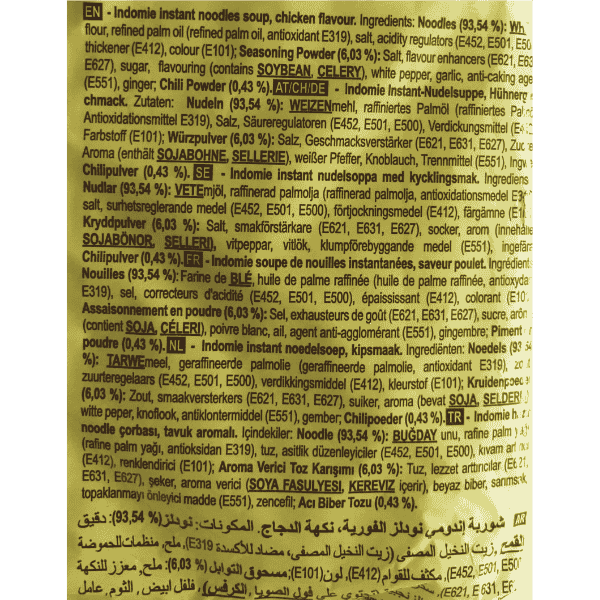 EN - Indomie instant noodles soup, chicken flavour. Ingredients: Noodles (93,54 %):
flour, refined palm oil (refined palm oil, antioxidant E319), salt, acidity regulators (E452, E501,
thickener (E412), colour (E101); Seasoning Powder (6,03 %): Salt, flavour enhancers (E621,
E627), sugar, flavouring (contains SOYBEAN, CELERY), white pepper, garlic, anti-caking
(E551), ginger; Chili Powder (0,43 %). AT/CH/DE - Indomie Instant-Nudelsuppe,
chmack. Zutaten: Nudeln (93,54 %): WEIZENmehl, raffiniertes Palmöl (raffiniertes
Antioxidationsmittel E319), Salz, Säureregulatoren (E452, E501, E500), Verdickungsmittel
Farbstoff (E101); Würzpulver (6,03 %): Salz, Geschmacksverstärker (E621, E631, E627),
Aroma (enthält SOJABOHNE, SELLERIE), weißer Pfeffer, Knoblauch, Trennmittel (E551),
Chilipulver (0,43 %). SE - Indomie instant nudelsoppa med kycklingsmak. Ingrediens
Nudlar (93,54 %): VETEmjöl, raffinerad palmolja (raffinerad palmolja, antioxidationsmedel
salt, surhetsreglerande medel (E452, E501, E500), förtjockningsmedel (E412), färgämne
Kryddpulver (6,03 %): Salt, smakförstärkare (E621, E631, E627), socker, arom
SOJABÖNOR, SELLERI), vitpeppar, vitlök, klumpförebyggande medel (E551),
Chilipulver (0,43 %). FR - Indomie soupe de nouilles instantanées, saveur poulet.
Nouilles (93,54 %): Farine de BLÉ, huile de palme raffinée (huile de palme raffinée,
E319), sel, correcteurs d'acidité (E452, E501, E500), épaississant (E412), colorant
Assaisonnement en poudre (6,03 %): Sel, exhausteurs de goût (E621, E631, E627), sucre,
(contient SOJA, CÉLERI), poivre blanc, ail, agent anti-agglomérant (E551), gingembre; Piment
poudre (0,43 %). NL - Indomie instant noedelsoep, kipsmaak. Ingrediënten: Noedels
%): TARWEmeel, geraffineerde palmolie (geraffineerde palmolie, antioxidant E319),
zuurteregelaars (E452, E501, E500), verdikkingsmiddel (E412), kleurstof (E101);
(6,03 %): Zout, smaakversterkers (E621, E631, E627), suiker, aroma (bevat SOJA,
witte peper, knoflook, antiklontermiddel (E551), gember; Chilipoeder (0,43 %). TR - Indomie
noodle çorbası, tavuk aromalı. İçindekiler: Noodle (93,54 %): BUĞDAY unu, rafine palm
(rafine palm yağı, antioksidan E319), tuz, asitlik düzenleyiciler (E452, E501, E500), kıvam
(E412), renklendirici (E101); Aroma Verici Toz Karışımı (6,03 %): Tuz, lezzet arttırıcılar
E631, E627), şeker, aroma verici (SOYA FASULYESI, KEREVIZ içerir), beyaz biber,
topaklanmayı önleyici madde (E551), zencefil; Acı Biber Tozu (0,43 %).
AR - شوربة إندومي نودلز الفورية، نكهة الدجاج. المكونات: نودلز (93,54 %): دقيق
القمح، زيت النخيل المصفى (زيت النخيل المصفى، مضاد للأكسدة E319)، ملح، منظمات للحموضة
(E452, E501, E500)، مكثف للقوام (E412)، لون (E101); مسحوق التوابل (6,03 %): ملح، معزز للنكهة
على فول الصويا، الكرفس)، فلفل أبيض، الثوم، عامل